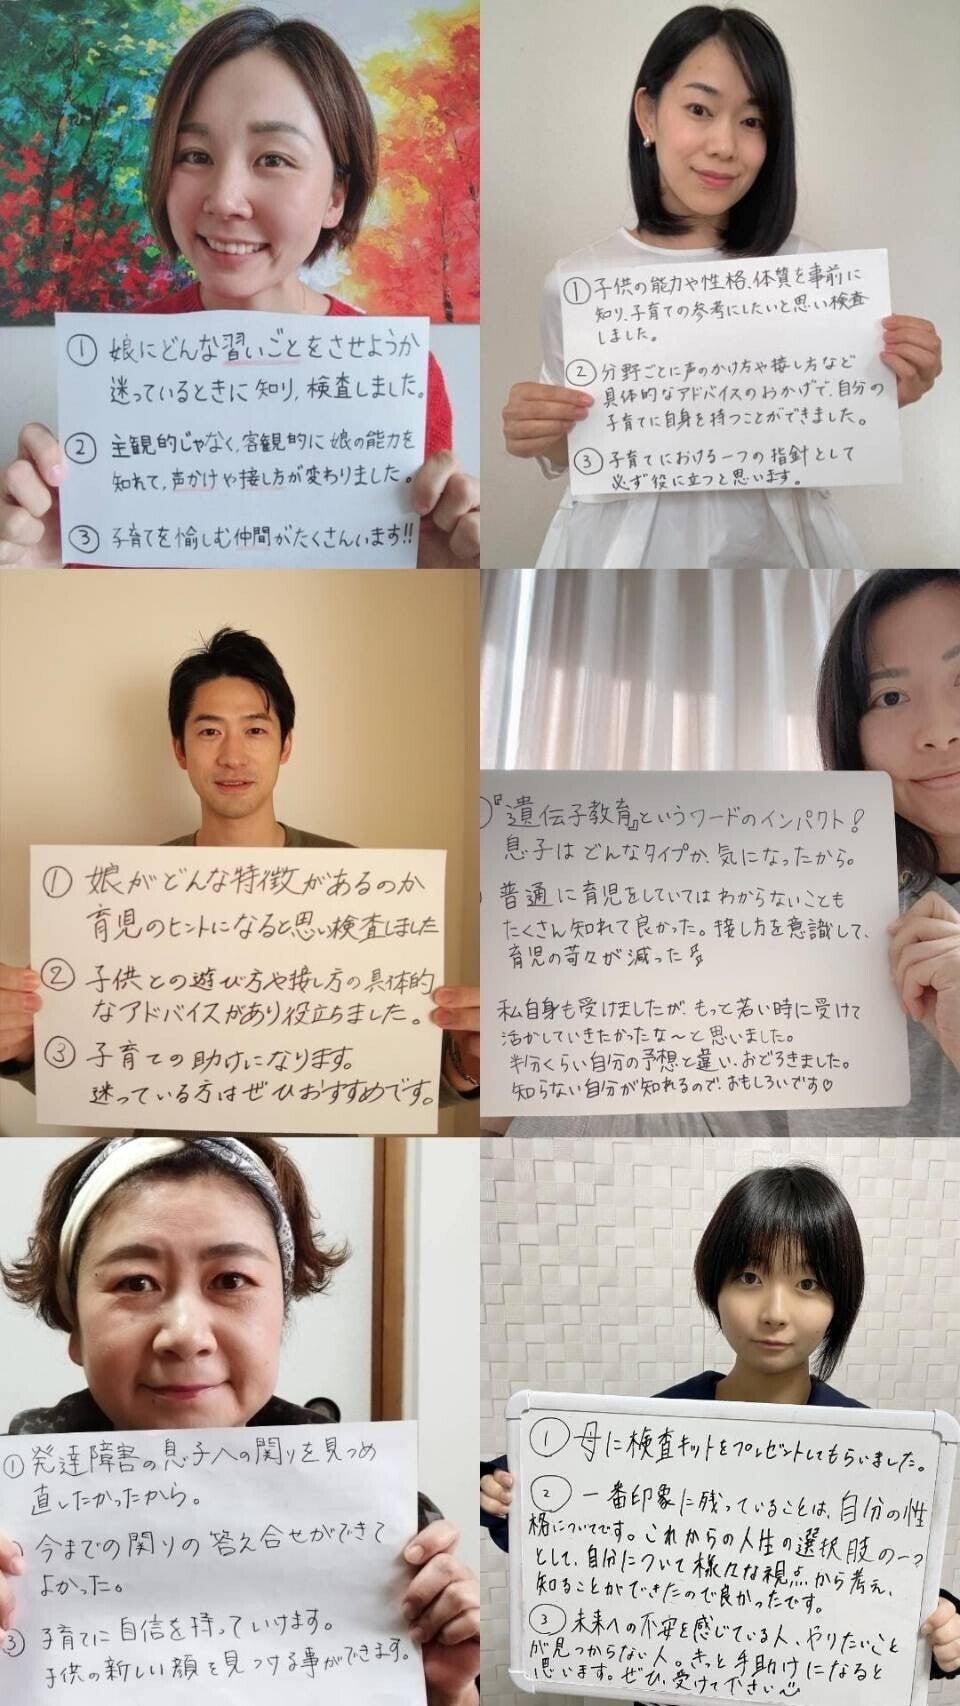 ① 娘にどんな習いごとをさせようか
迷っているときに知り、検査しました。
② 主観的じゃなく、客観的に娘の能力を
知れて、声かけや接し方が変わりました。
③ 子育てを愉しむ仲間がたくさんいます!!
① 子供の能力や性格、体質を事前に
知り、子育ての参考にしたいと思い検査
しました。
② 分野ごとに声のかけ方や接し方など
具体的なアドバイスのおかげで、自分の
子育てに自身を持つことができました。
③ 子育てにおける一つの指針として
必ず役に立つと思います。
① 娘がどんな特徴があるのか
育児のヒントになると思い検査しました
② 子供との遊び方や接し方の具体的
なアドバイスがあり役立ちました。
③ 子育ての助けになります。
迷っている方はぜひおすすめです。
『遺伝子教育』というワードのインパクト!
息子はどんなタイプか、気になったから。
普通に育児をしていてはわからないことも
たくさん知れて良かった。接し方を意識して、
育児の苛々が減った
私自身も受けましたが、もっと若い時に受けて
活かしていきたかったな〜と思いました。
半分くらい自分の予想と違い、おどろきました。
知らない自分が知れるので、おもしろいです♡
① 発達障害の息子への関りを見つめ
直したかったから。
今までの関りの答え合せができて
よかった。
③ 子育てに自信を持っていけます。
子供の新しい顔を見つける事ができます。
① 母に検査キットをプレゼントしてもらいました。
② 一番印象に残っていることは、自分の性
格についてです。これからの人生の選択肢の一つ
として、自分について様々な視点から考え、
知ることができたので良かったです。
③ 未来への不安を感じている人、やりたいこと
が見つからない人。きっと手助けになると
思います。ぜひ、受けて下さい